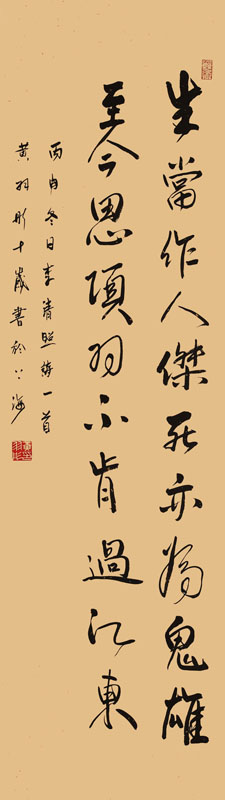 生當作人傑死亦為鬼雄
至今思項羽不肯過江東
丙申冬日李清照詩一首
黃羽彤十歲書於上海